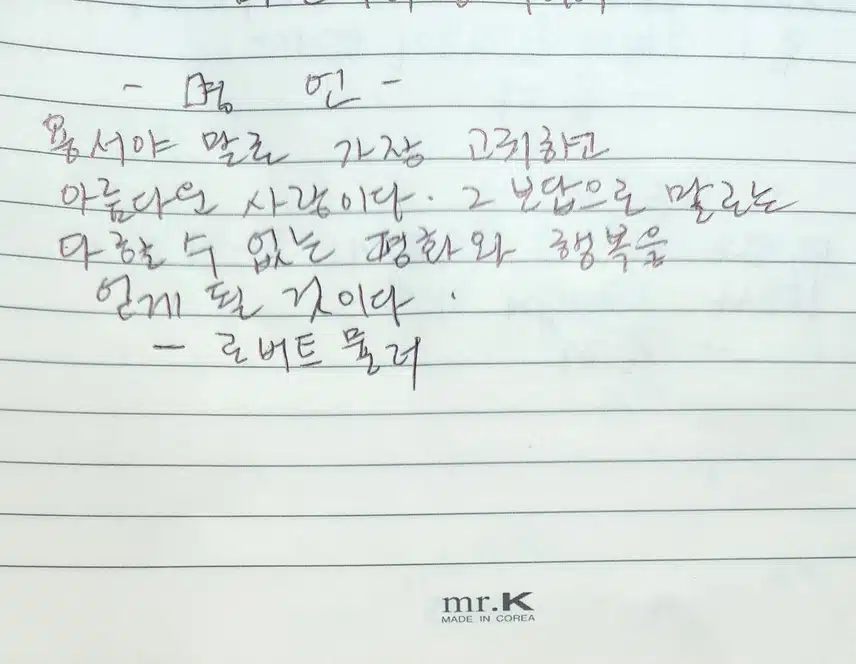 - 명 언 -
용서야 말로 가장 고귀하고
아름다운 사랑이다. 그 보답으로 말로는
다 할 수 없는 평화와 행복을
얻게 될 것이다.
- 로버트 뮬러
mr.K
MADE IN COREA